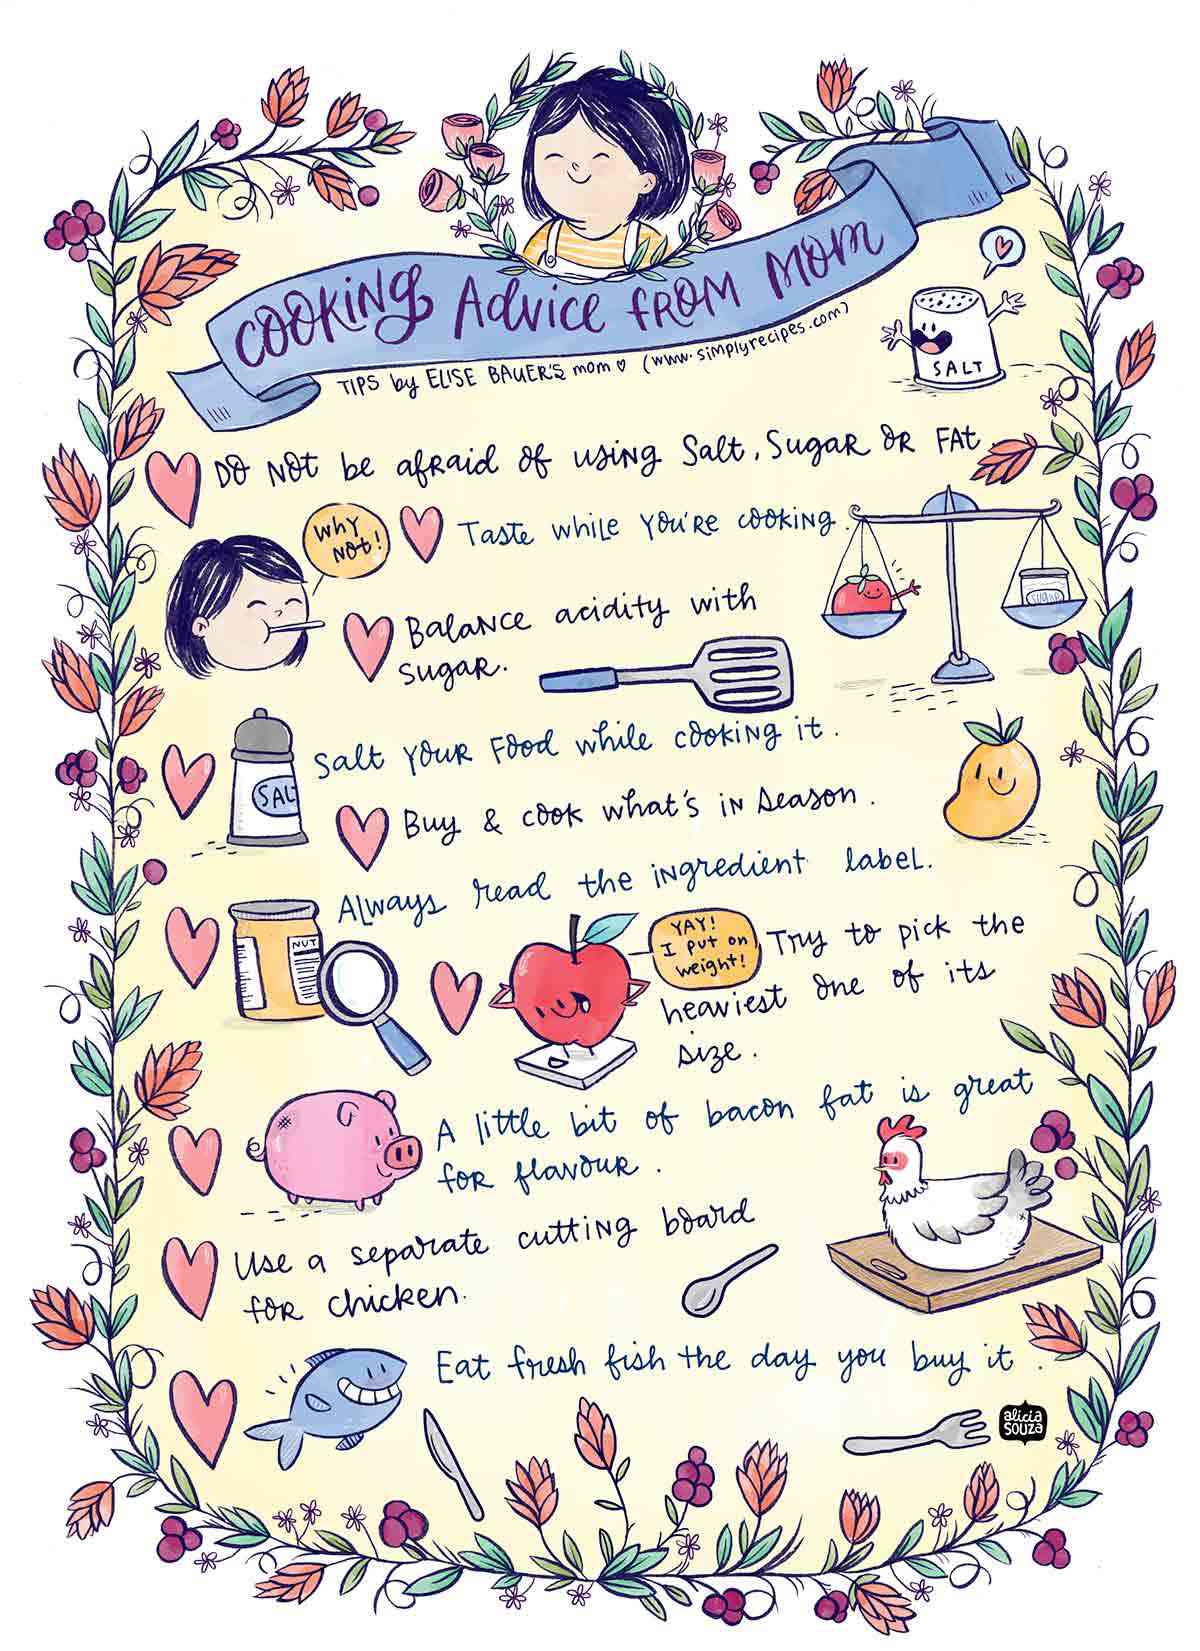 COOKING Advice FROM MOM
TIPS by ELISE BAUER'S mom (www.simplyrecipes.com)
SALT
DO NOT be afraid of using Salt, Sugar or FAt.
WHY
NOT!
Taste while you're cooking.
Balance acidity with
sugar.
SUGAR
SAL
Salt your Food while cooking it.
Buy & cook what's in season.
Always read the ingredient label.
NUT
YAY!
I put on
weight!
Try to pick the
heaviest one of its
size.
A little bit of bacon fat is great
for flavour.
Use a separate cutting board
for chicken.
Eat fresh fish the day you buy it.
alicia
souza